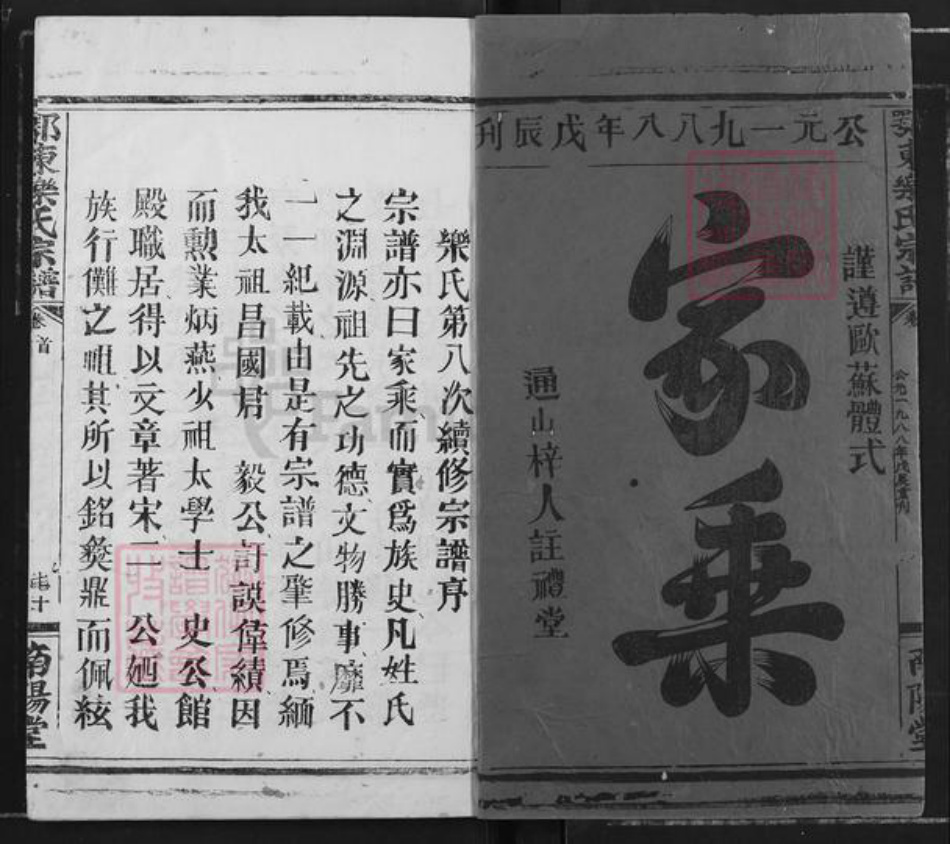 公元一九八八年戊辰刊
謹遵歐蘇體式
家乘
通山梓人註禮堂
鄂東樂氏宗譜
南陽堂
樂氏第八次續修宗譜序
宗譜亦曰家乘而實爲族史凡姓氏
之淵源祖先之功德文物勝事靡不
一一紀載由是有宗譜之肇修焉緬
我太祖昌國君 毅公訏謨偉績因
而勳業炳燕少祖太學士 史公館
殿職居得以文章著宋二 公廼我
族行儺之 其所以銘彝鼎而佩絃
鄂東樂氏宗譜
卷首
南陽堂